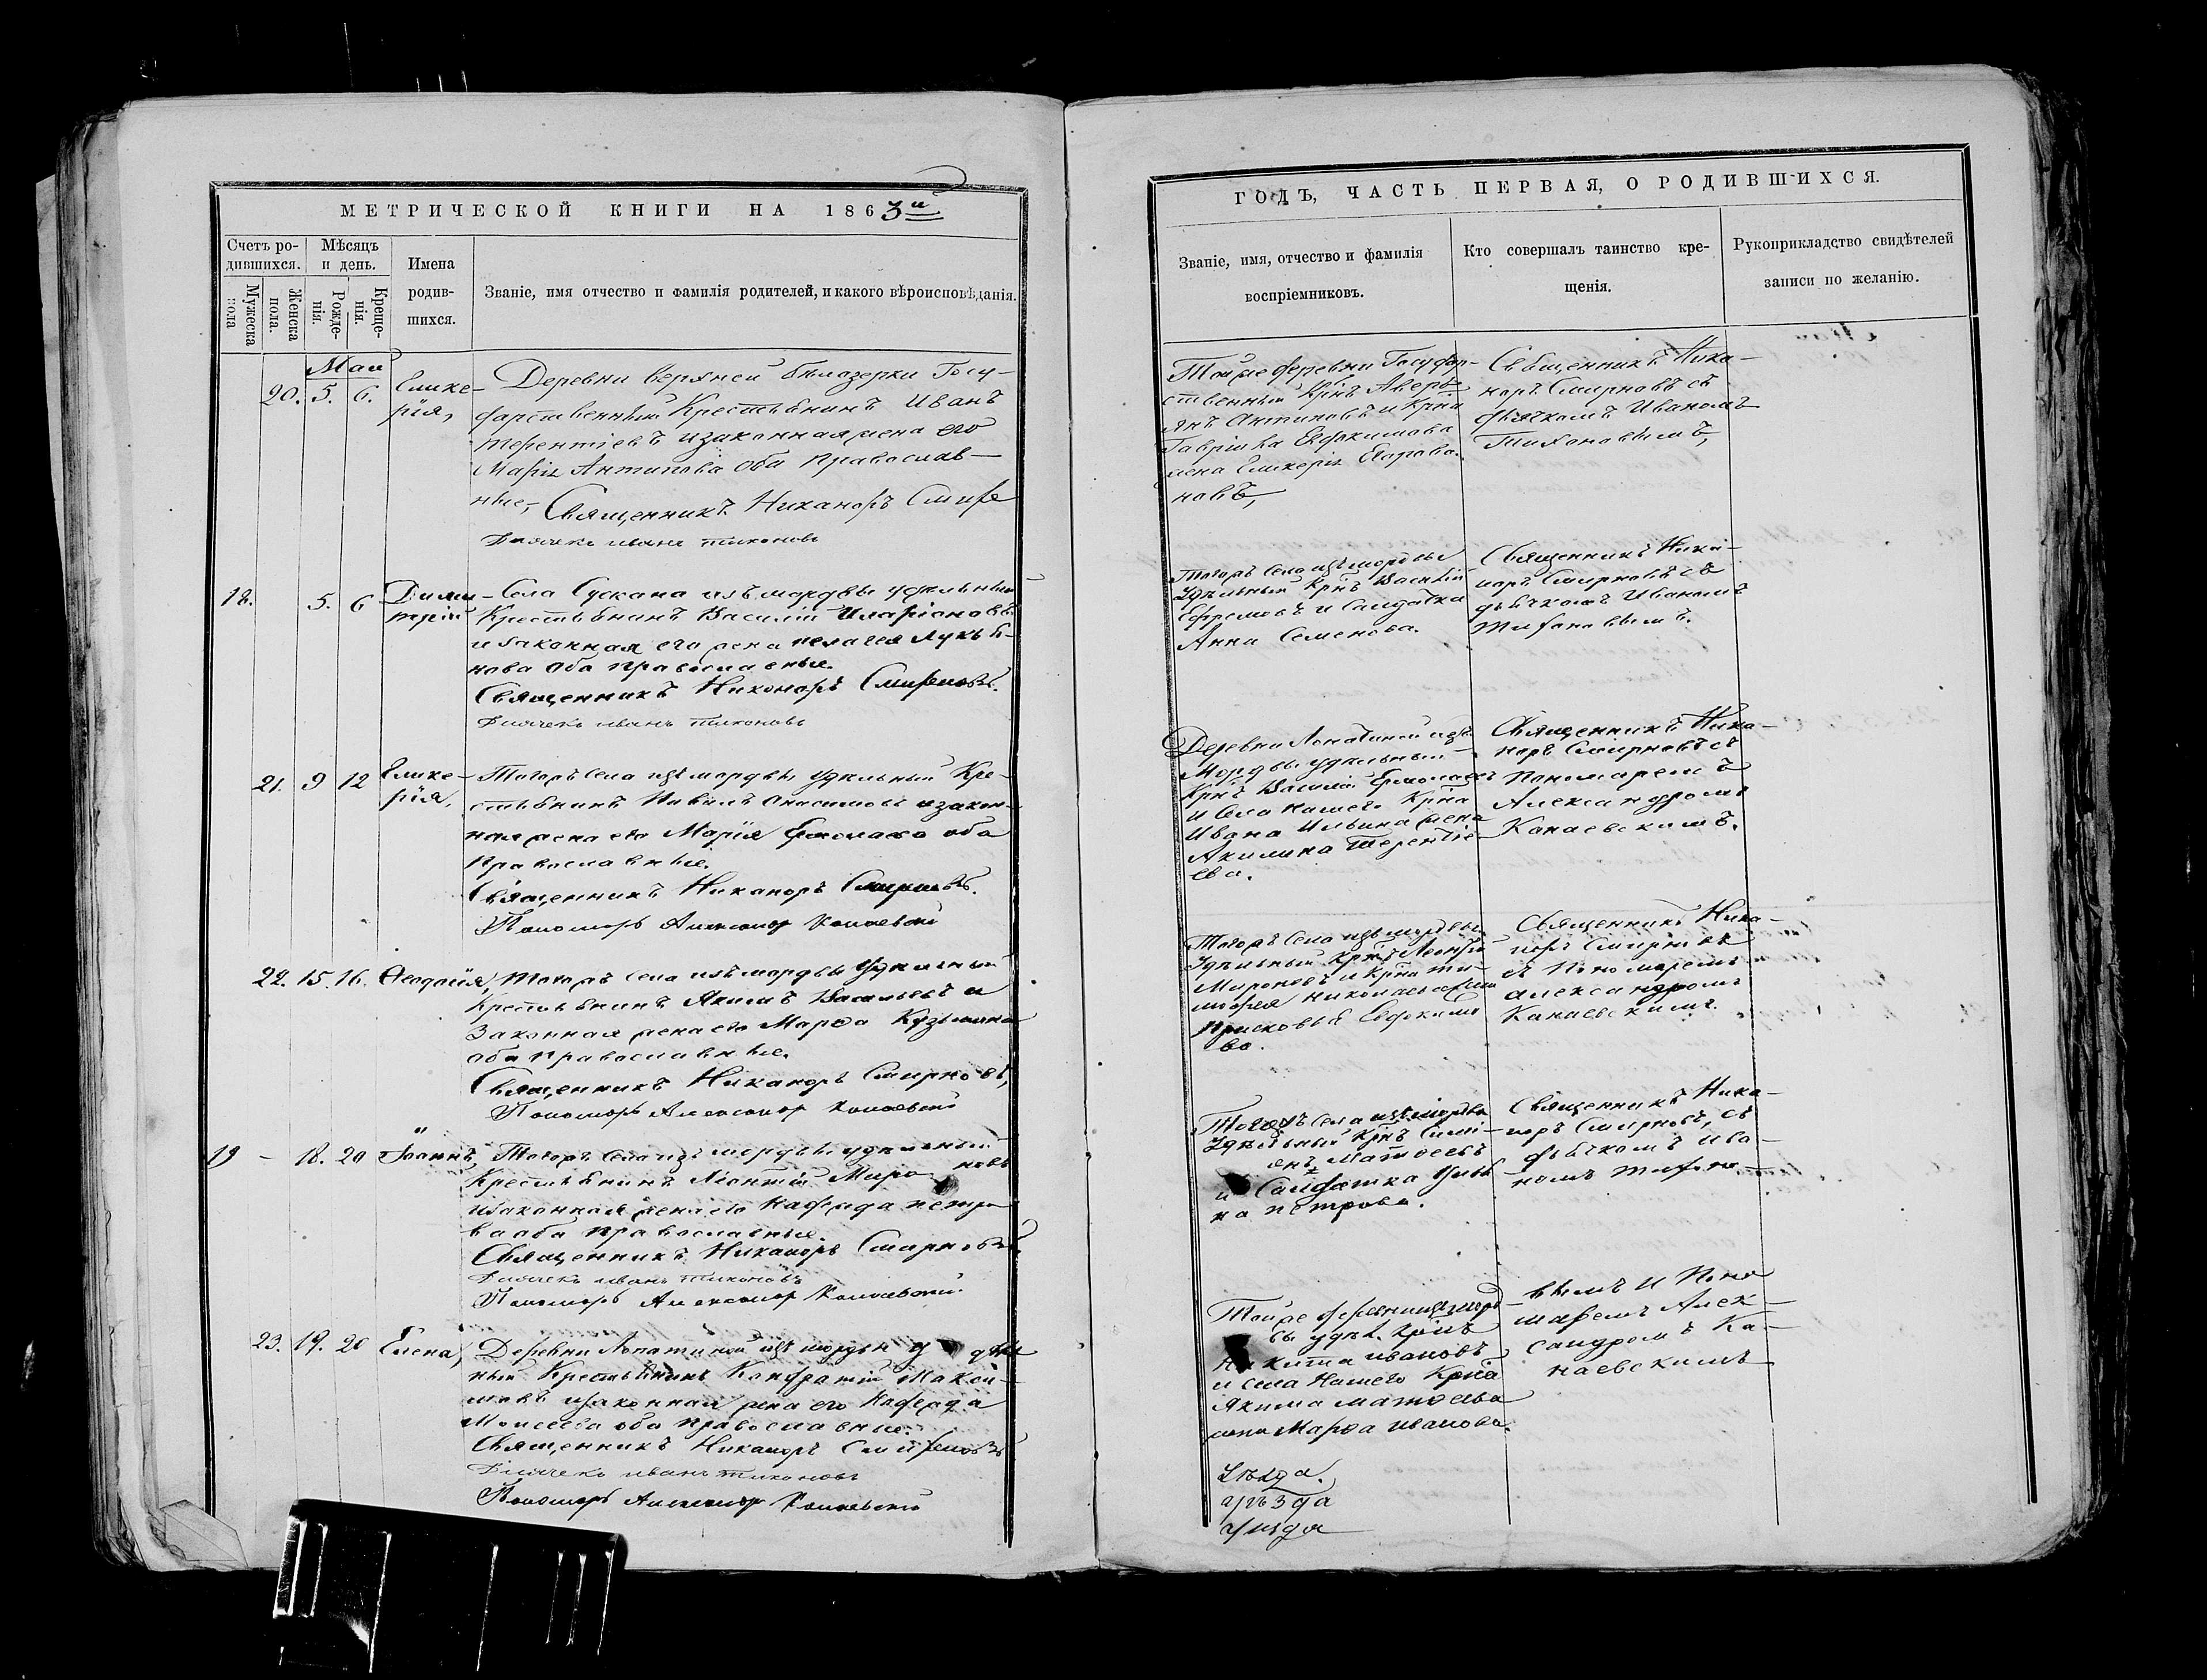 МЕТРИЧЕСКОЙ КНИГИ НА 1863й
Счетъ ро-
дившихся.
Мѣсяцъ
и день.
Имена
родив-
шихся.
Званіе, имя отчество и фамилія родителей, и какого вѣроисповѣданія.
Мужеска
пола
Женска
пола.
Рожде-
нія.
Креще-
нія.
Маи
20. 5. 6. Глике-
рія,
Деревни верхней Бѣлозерки Госу-
дарственный Крестьянинъ Иванъ
Терентіевъ и законная жена его
Марія Антипова оба православ-
ные,
Священникъ Никаноръ Смирн
Дьячекъ иванъ тихоновъ
18. 5. 6 Дими-
трій
Села Сускана изъ мордвы удѣльный
Крестьянинъ Василій Иларіоновъ
и законная его жена пелагея Лукья-
нова оба православные.
Священникъ Никаноръ Смирновъ.
Дьячекъ иванъ тихоновъ
21. 9 12 Глике-
рія,
Тогожъ села изъ мордвы удѣльный Кре-
стьянинъ
законная жена его Марія Ермолаева оба
Православные.
Священникъ Никаноръ Смирновъ.
Пономарь Александр Канаевский
22. 15. 16. Ѳеодосія,
Тогожъ села изъ мордвы удѣльный
Крестьянинъ Якимъ Васильевъ и
Законная жена его Марѳа Кузьмина
оба православные.
Священникъ Никаноръ Смирновъ,
Пономарь Александр Канаевский
19 - 18. 20 Іоаннъ,
Тогожъ села изъ мордвы удѣльный
Крестьянинъ Леонтій Миро новъ
и законная жена его Надежда петро
ва оба православные.
Священникъ Никаноръ Смирновъ.
Дьячекъ иванъ тихоновъ
Пономарь Александр Канаевский
23. 19. 20 Елена,
Деревни Лопатиной изъ мордвы удѣль
ный Крестьянинъ Кондратій Макси-
мовъ и законная жена его Надежда
Моисеева оба православные.
Священникъ Никаноръ Смирновъ
Дьячекъ иванъ тихоновъ
Пономарь Александр Канаевский
ГОДЪ, ЧАСТЬ ПЕРВАЯ, О РОДИВШИХСЯ.
Званіе, имя, отчество и фамилія
воспріемниковъ.
Кто совершалъ таинство кре-
щенія.
Рукоприкладство свидѣтелей
записи по желанію.
Тойже деревни Государ-
ственный Крнъ Аверь-
янъ Антиповъ и Крна
Гавріила Евдокимова
жена Гликерія
новъ,
Священникъ Ника-
норъ Смирновъ съ
дьячкомъ Иваномъ
Тихоновымъ,
Тогожъ села изъ мордвы
Удѣльный Крнъ Василій
Ефремовъ и Солдатка
Анна Семенова.
Священникъ Ника-
норъ Смирновъ съ
дьячкомъ Иваномъ
Тихоновымъ.
Деревни Лопатиной изъ
Мордвы удѣльный
Крнъ Василій Ермолаевъ
и села нашего Крна
Ивана Ильина жена
Акилина Терентіе-
ева.
Священникъ Ника-
норъ Смирновъ съ
Пономаремъ
Александромъ
Канаевскимъ.
Тогожъ села изъ мордвы
Удѣльный Крнъ Леонтій
Мироновъ и Крна ти-
моѳея Николаева
Прасковья Евдокимо
ва.
Священникъ Ника-
норъ Смирновъ
съ Пономаремъ
Александромъ
Канаевскимъ.
Тогожъ села изъ мордвы
Удѣльный Крнъ
янъ Матвѣевъ
и Солдатка Улья
на петрова.
Священникъ Ника-
норъ Смирновъ, съ
дьячкомъ Ива-
номъ Тихоно-
Тойже деревни изъ морд-
вы удѣл. Крнъ
Никита ивановъ
и села Нашего Крна
Якима матвѣева
жена Марѳа иванова.
вымъ и Поно
маремъ Алек-
сандромъ Ка-
наевскимъ